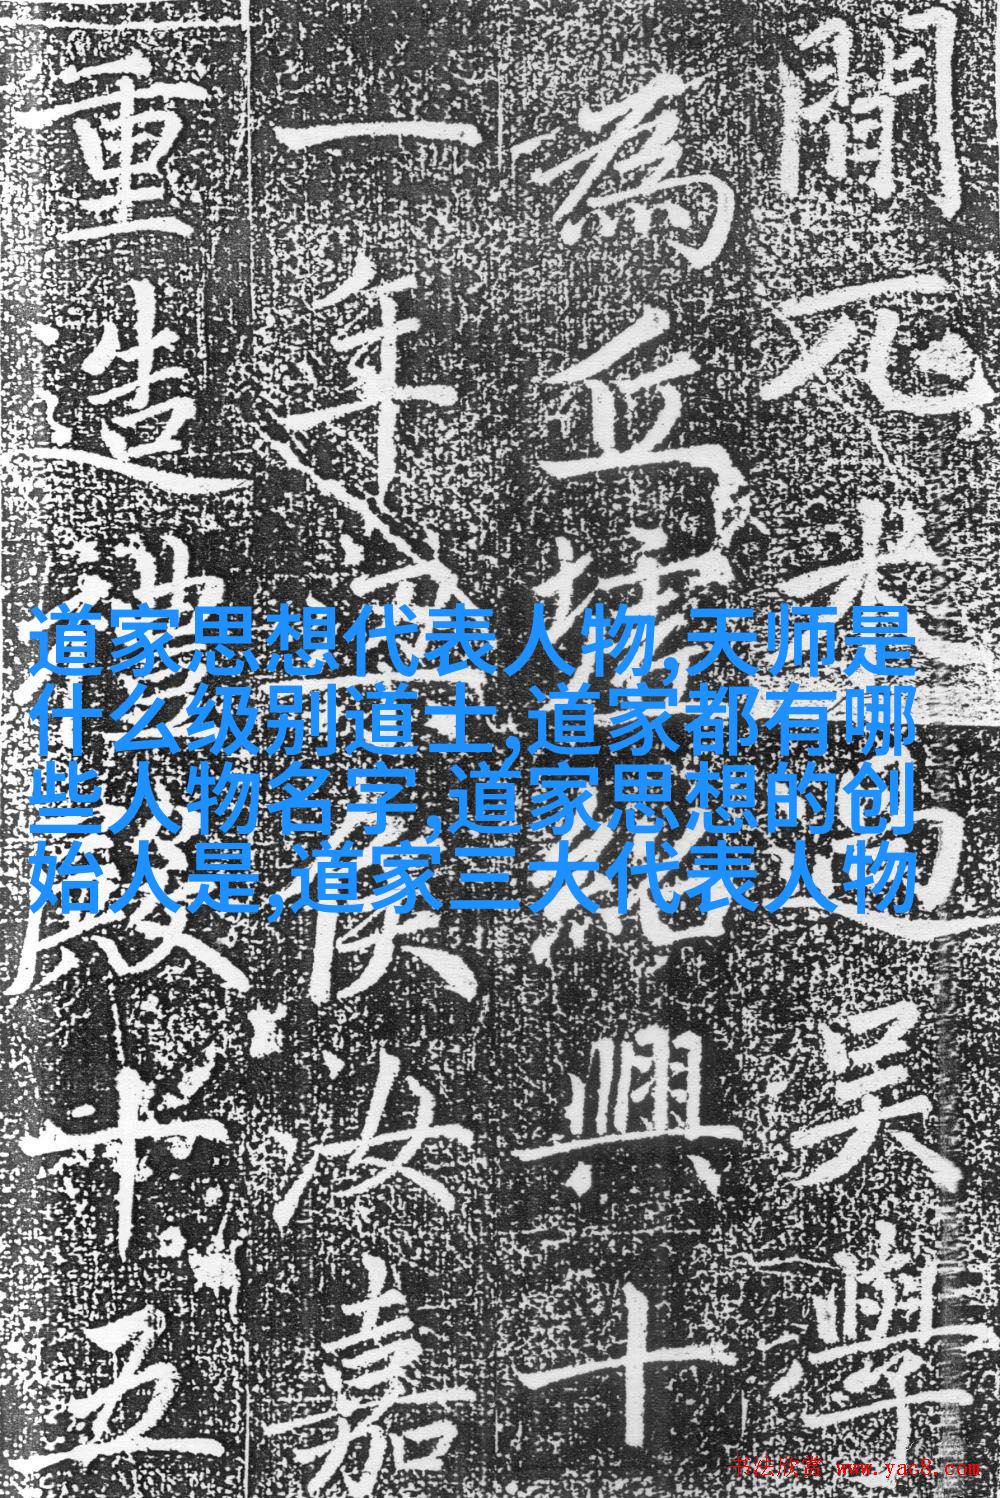 間元吳學
為丘墟紹興十
一年侯汝嘉
重造殿十五
道家思想代表人物,天师是
什么级别道士,道家都有哪
些人物名字,道家思想的创
始人是,道家三大代表人物
书法欣赏 www.yac8.com